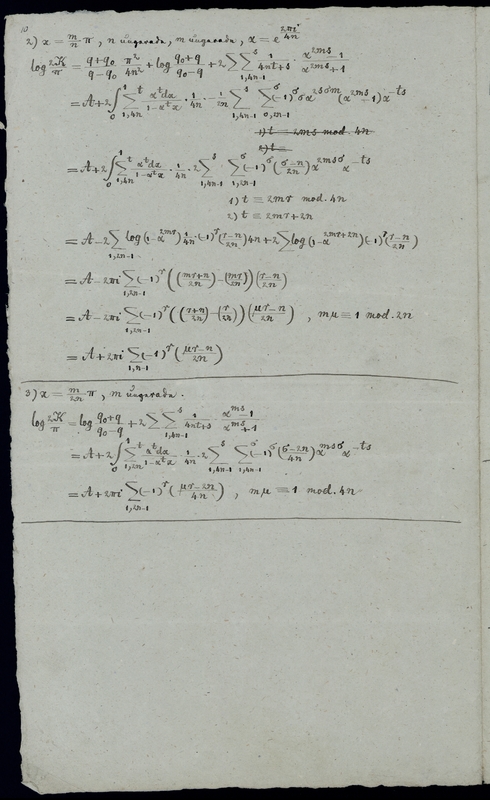 10
2) x = m/n π, n ungerade, m ungerade, α = e^{2πi/4n}
log 2K/π = (q+q₀)/(q−q₀) π²/4n² + log (q₀+q)/(q₀−q) + 2 ∑∑^s_{1,4n−1} 1/(4nt+s) · (α^{2ms}−1)/(α^{2ms}+1)
= A + 2 ∫₀¹ ∑^t_{1,4n} α^t dx/(1−α^t x) · 1/4n · 1/2n ∑^s_{1,4n−1} ∑^σ_{0,2n−1} (−1)^σ σ α^{2sσm} (α^{2ms}−1) α^{−ts}
1) t ≡ 2ms mod. 4n
2) t ≡
= A + 2 ∫₀¹ ∑^t_{1,4n} α^t dx/(1−α^t x) · 1/4n · 2 ∑^s_{1,4n−1} ∑^σ_{1,2n−1} (−1)^σ ((σ−n)/2n) α^{2msσ} α^{−ts}
1) t ≡ 2mr mod. 4n
2) t ≡ 2mr+2n
= A − 2 ∑_{1,2n−1} log(1−α^{2mr}) 1/4n · (−1)^r ((r−n)/2n) 4n + 2 ∑ log(1−α^{2mr+2n}) (−1)^r ((r−n)/2n)
= A − 2πi ∑_{1,2n−1} (−1)^r (((mr+n)/2n) − (mr/2n)) ((r−n)/2n)
= A − 2πi ∑_{1,2n−1} (−1)^r (((r+n)/2n) − (r/2n)) ((μr−n)/2n) , mμ ≡ 1 mod. 2n
= A + 2πi ∑_{1,n−1} (−1)^r ((μr−n)/2n)
3) x = m/2n π, m ungerade.
log 2K/π = log (q₀+q)/(q₀−q) + 2 ∑∑^s_{1,4n−1} 1/(4nt+s) (α^{ms}−1)/(α^{ms}+1)
= A + 2 ∫₀¹ ∑^t_{1,4n} α^t dx/(1−α^t x) · 1/4n · 2 ∑^s_{1,4n−1} ∑^σ_{1,4n−1} (−1)^σ ((σ−2n)/4n) α^{msσ} α^{−ts}
= A + 2πi ∑_{1,2n−1} (−1)^r ((μr−2n)/4n) , mμ ≡ 1 mod. 4n